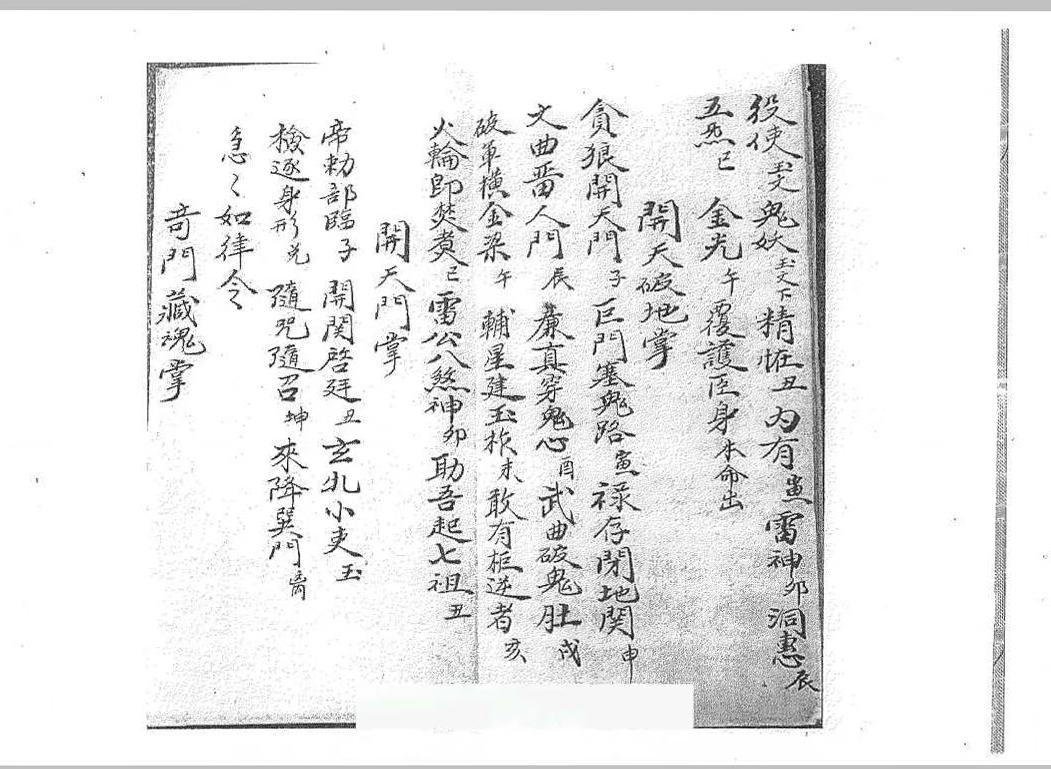 役使玉文鬼妖玉文下精怪丑内有寅雷神卯洞惠辰
五炁巳 金光午覆護臣身本命出
開天破地掌
貪狼開天門子 巨門塞鬼路寅 祿存閉地関申
文曲番人門辰 廉真穿鬼心酉 武曲破鬼肚戌
破軍橫金梁午 輔星建玉柞未 敢有柜逆者亥
火輪即焚煮巳 雷公八煞神卯 助吾起七祖丑
開天門掌
帝勅部臨子 開関啓廷丑 玄北小吏玉
檢逐身形兑 隨咒隨召坤 來降巽門离
急〻如律令
奇門藏魂掌